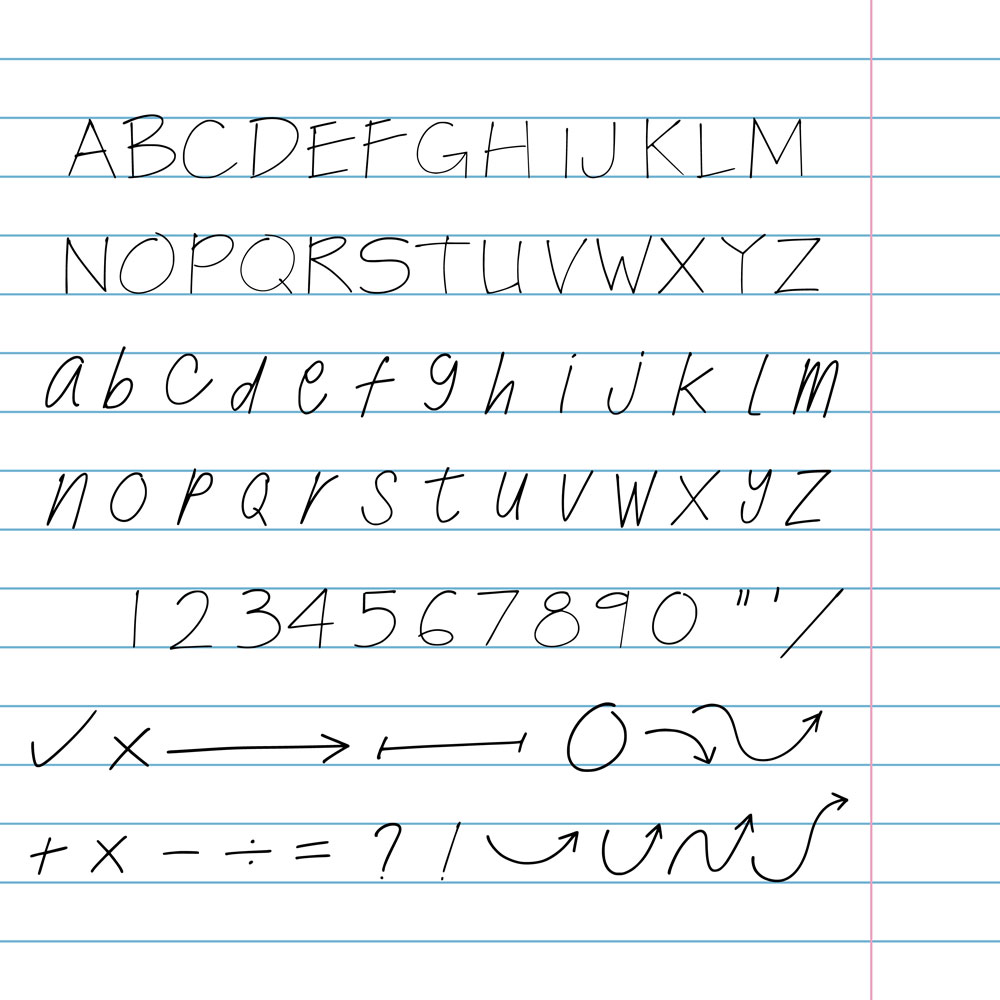 ABCDEFGHIJKLM
NOPQRSTUVWXYZ
a b c d e f g h i j k l m
n o p q r s t u v w x y z
1 2 3 4 5 6 7 8 9 0 " ' /
✓ × → ⊢⊣ ○ ⤵ ↝
+ × − ÷ = ? ! ⤻ ⤴ ↝ ⤴